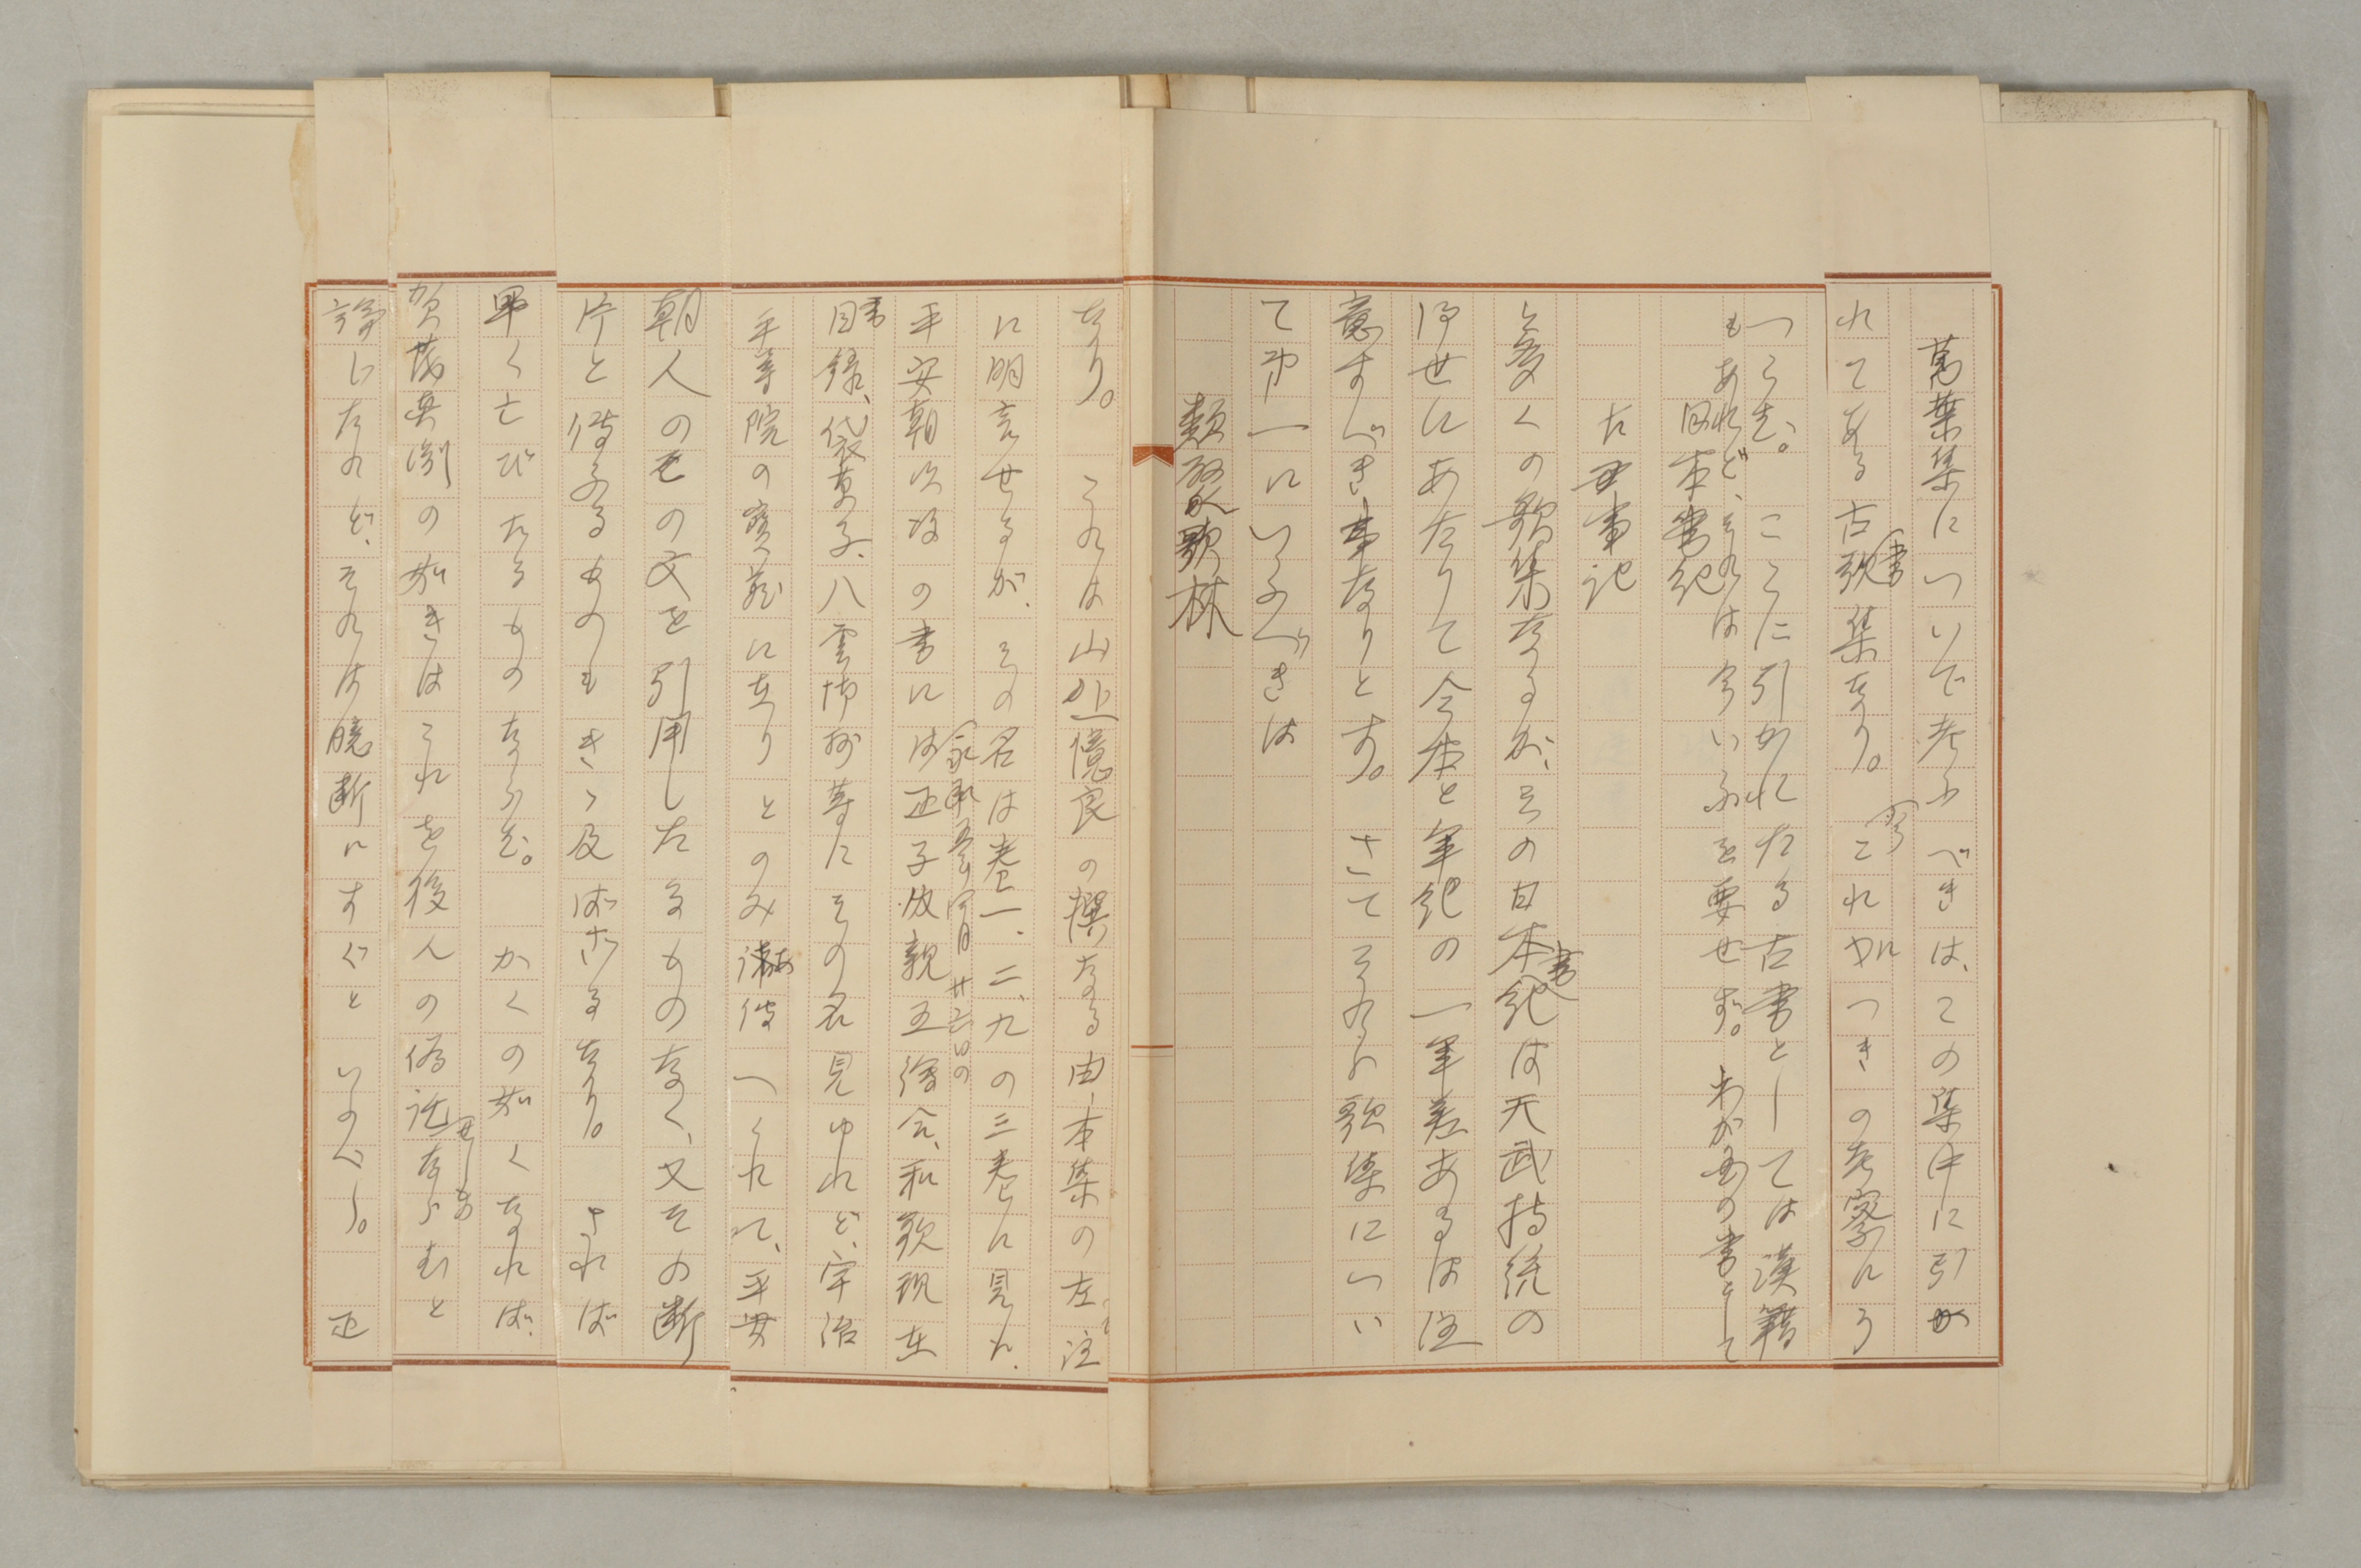 萬葉集についで考ふべきは、この集中に引か
れてある古歌書集なり。これにつきの考察にう
つらむ。ここに引かれたる古書としては漢籍
もあれど、それは今いふを要せず。わが国の書として
日本書紀
古事記
多くの歌集なるが、その日本書紀は天武持統の
御世にあたりて今本と年紀の一年差あるは注
意すべき事なりとす。さてそれら歌集につい
て第一にいふべきは
類聚歌林
なり。これは山上憶良の撰なる由本集の左注
に明言せるが、その名は巻一、二、九の三巻に見え、
平安朝以後の書には正子内親王繪合、和歌現在
書目録、袋草子、八雲御抄等にその名見ゆれど、宇治
平等院の寶蔵に在りとのみ傳へられて、平安
朝人のその文を引用したるものなく、又その断
片と傳ふるものもきゝ及ばざるなり。されば
早く亡びたるものならむ。かくの如くなれば、
賀茂真淵の如きはこれを後人の偽託ならむと
論じたれど、それは臆断にすぐといふべし。正